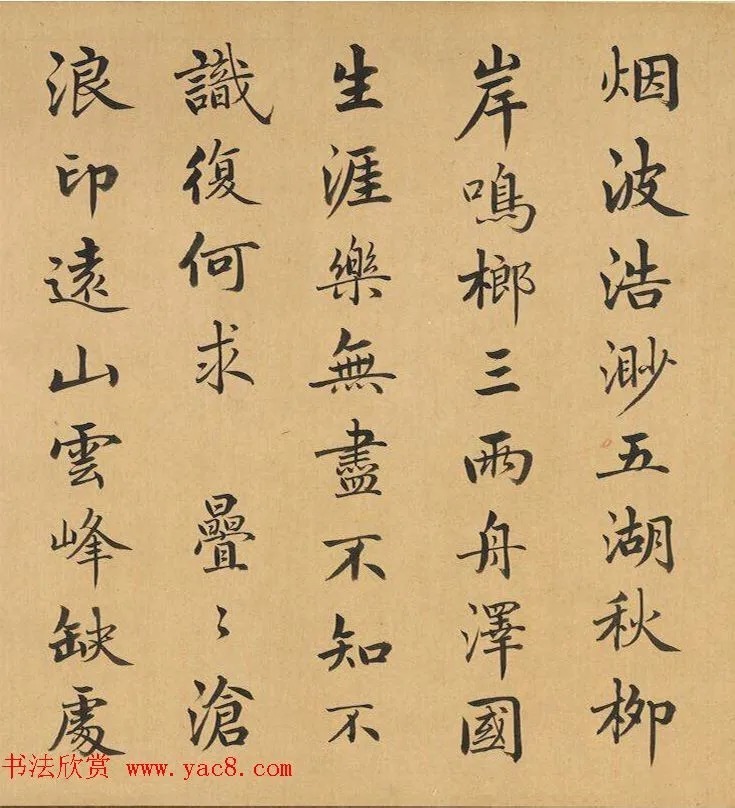 烟波浩渺五湖秋柳
岸鳴榔三兩舟澤國
生涯樂無盡不知不
識復何求 疊〻滄
浪印遠山雲峰缺處
书法欣赏 www.yac8.com